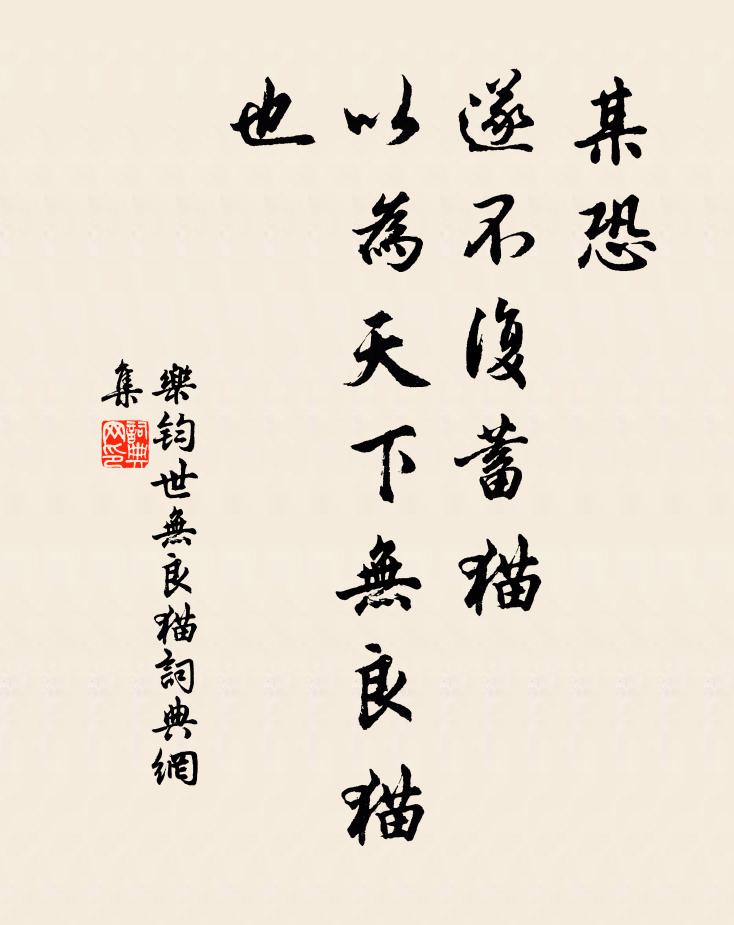 某恐
遂不復蓄猫
以為天下無良猫
也
樂鈞世無良猫詞典網
集
詞典
网印